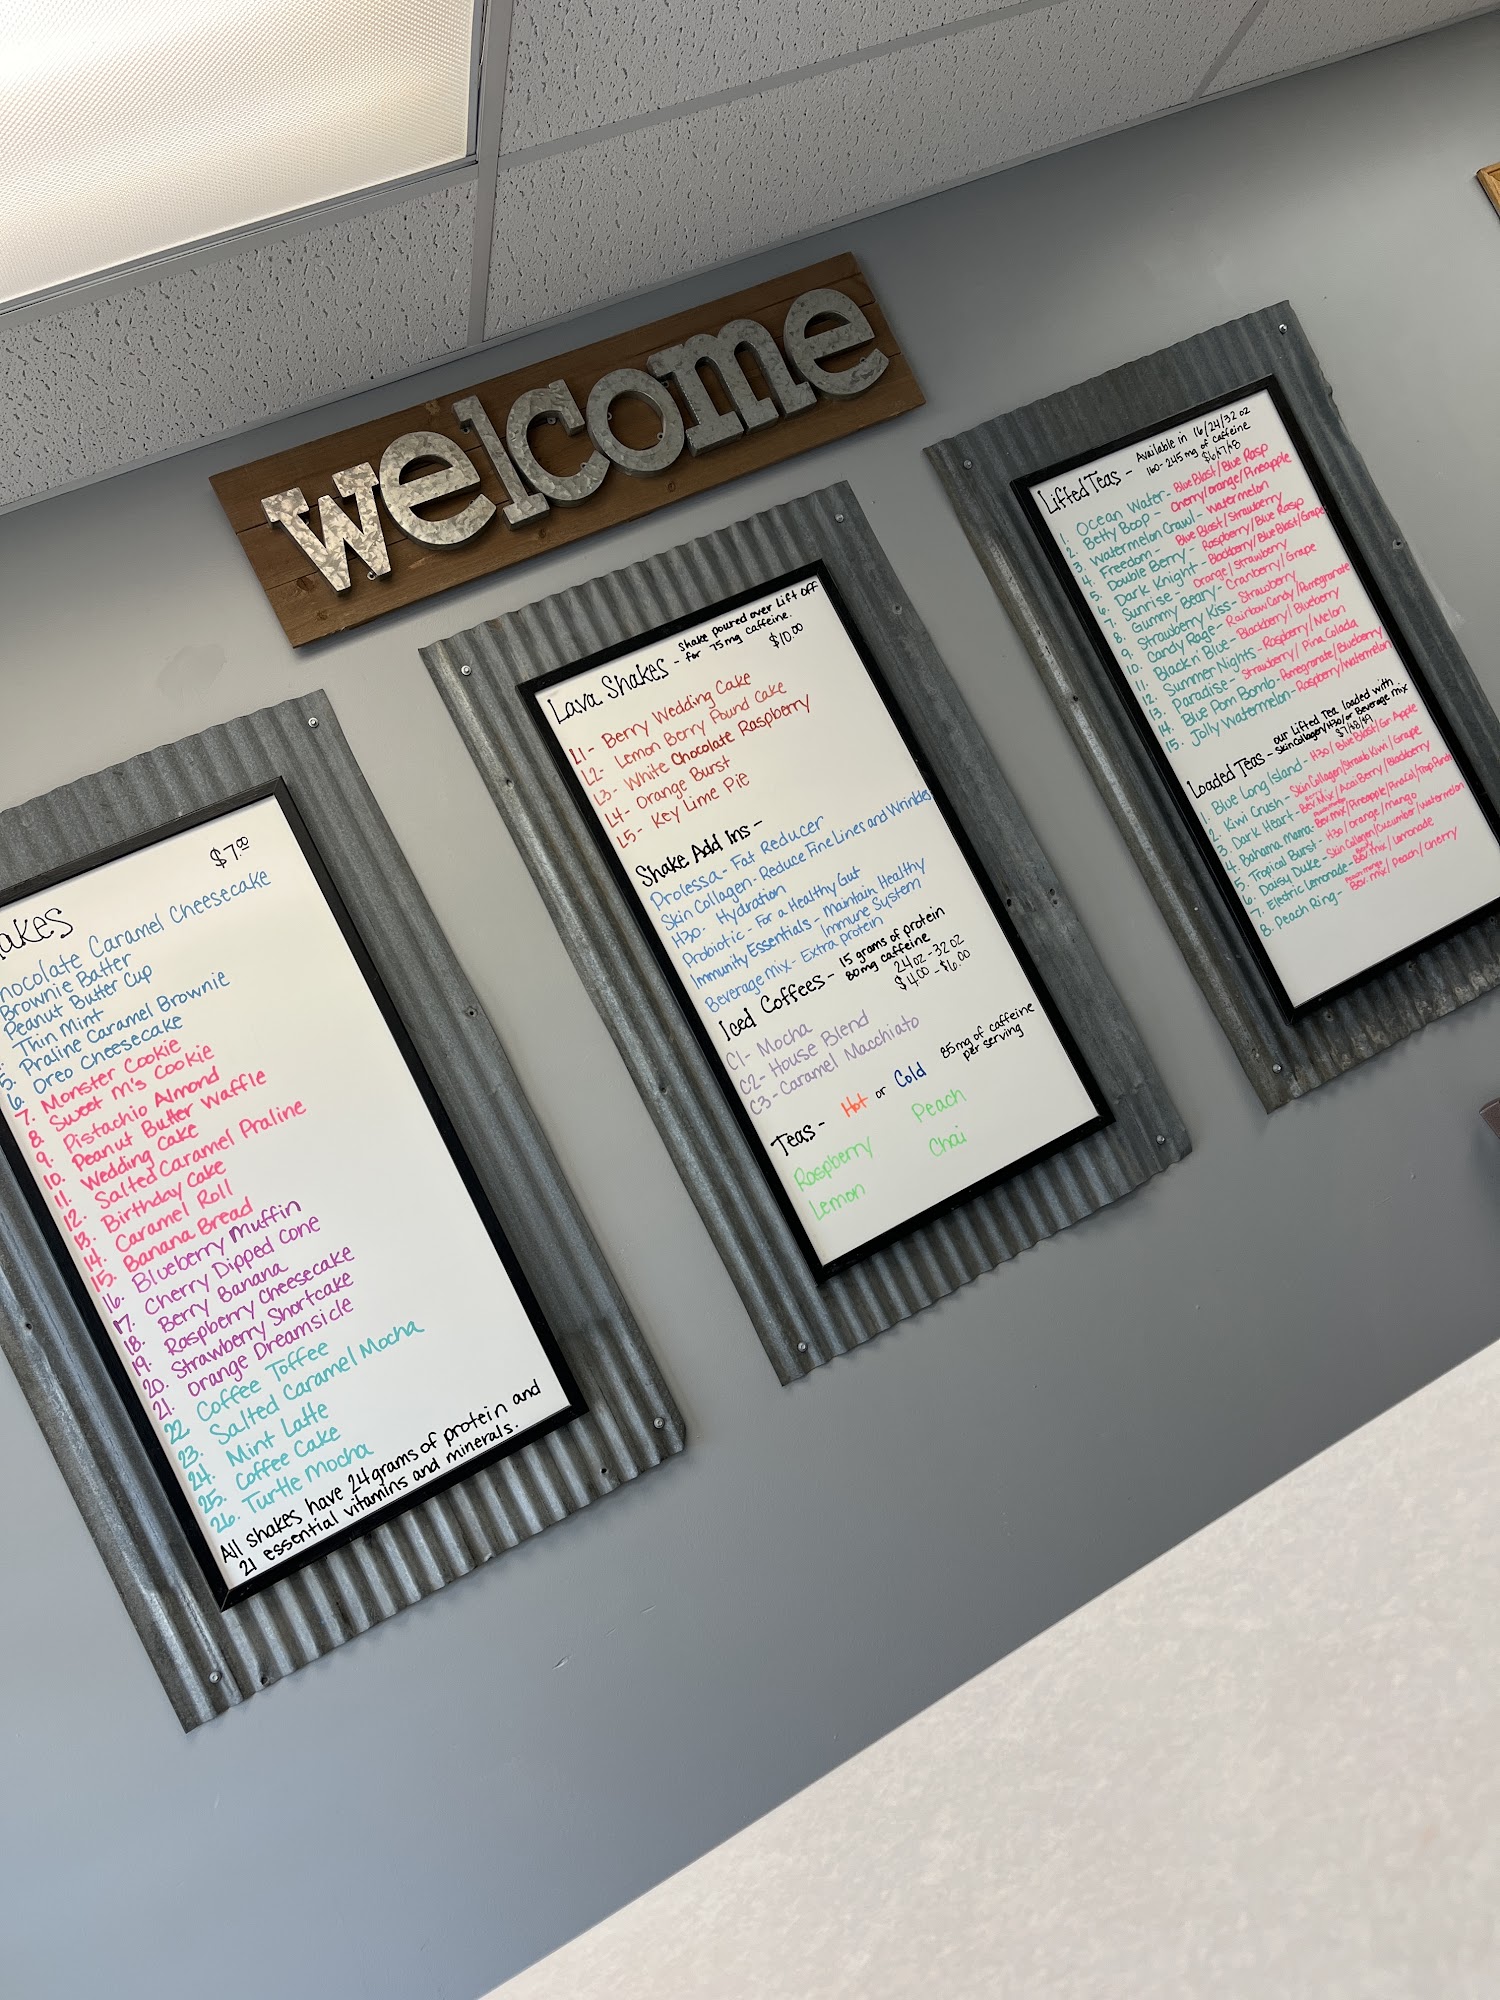 welcome
akes
$7.00
hocolate Caramel Cheesecake
Brownie Batter
Peanut Butter Cup
Thin Mint
5. Praline Caramel Brownie
6. Oreo Cheesecake
7. Monster Cookie
8. Sweet M's Cookie
9. Pistachio Almond
10. Peanut Butter Waffle
11. Wedding Cake
12. Salted Caramel Praline
13. Birthday Cake
14. Caramel Roll
15. Banana Bread
16. Blueberry Muffin
17. Cherry Dipped Cone
18. Berry Banana
19. Raspberry Cheesecake
20. Strawberry Shortcake
21. Orange Dreamsicle
22. Coffee Toffee
23. Salted Caramel Mocha
24. Mint Latte
25. Coffee Cake
26. Turtle Mocha
All shakes have 24 grams of protein and
21 essential vitamins and minerals.
Lava Shakes - Shake poured over Lift Off
for 75mg caffeine.
$10.00
L1- Berry Wedding Cake
L2- Lemon Berry Pound Cake
L3- White Chocolate Raspberry
L4- Orange Burst
L5- Key Lime Pie
Shake Add Ins -
Prolessa- Fat Reducer
Skin Collagen- Reduce Fine Lines and Wrinkles
H30- Hydration
Probiotic- For a Healthy Gut
Immunity Essentials - maintain Healthy
Immune System
Beverage Mix- Extra protein
Iced Coffees- 15 grams of protein
80mg caffeine
24oz-32oz
$4.00-$6.00
C1- Mocha
C2- House Blend
C3- Caramel Macchiato
Teas- Hot or Cold 85mg of caffeine
per serving
Raspberry Peach
Lemon Chai
Lifted Teas - Available in 16/24/32 oz
160-245 mg of caffeine
$6/7/8
1. Ocean Water- Blue Blast/Blue Rasp
2. Betty Boop - Cherry/Orange/Pineapple
3. Watermelon Crawl- Watermelon
4. Freedom- Blue Blast/Strawberry
5. Double Berry - Raspberry/Blue Rasp
6. Dark Knight - Blackberry/Blue Blast/Grape
7. Sunrise- Orange/Strawberry
8. Gummy Beary- Cranberry/Grape
9. Strawberry Kiss- Strawberry
10. Candy Rage- Rainbow Candy/Pomegranate
11. Black n' Blue- Blackberry/Blueberry
12. Summer Nights- Raspberry/Melon
13. Paradise- Strawberry/Pina Colada
14. Blue Pom Bomb- Pomegranate/Blueberry
15. Jolly Watermelon- Raspberry/Watermelon
Loaded Teas- our Lifted Tea loaded with
Skin Collagen/H30/or Beverage mix
$7/$8/$9
1. Blue Long Island- H30/Blue Blast/Gr Apple
2. Kiwi Crush- Skin Collagen/Strawb Kiwi/Grape
3. Dark Heart- Bev Mix/Acai Berry/Blackberry
4. Banana Mama- Bev mix/Pineapple/PinaCol/Trop Punch
5. Tropical Burst- H30/Orange/Mango
6. Daisy Duke- Skin Collagen/Cucumber/Watermelon
7. Electric Lemonade- Bev Mix/Lemonade
8. Peach Ring- Bev. mix/Peach/Cherry